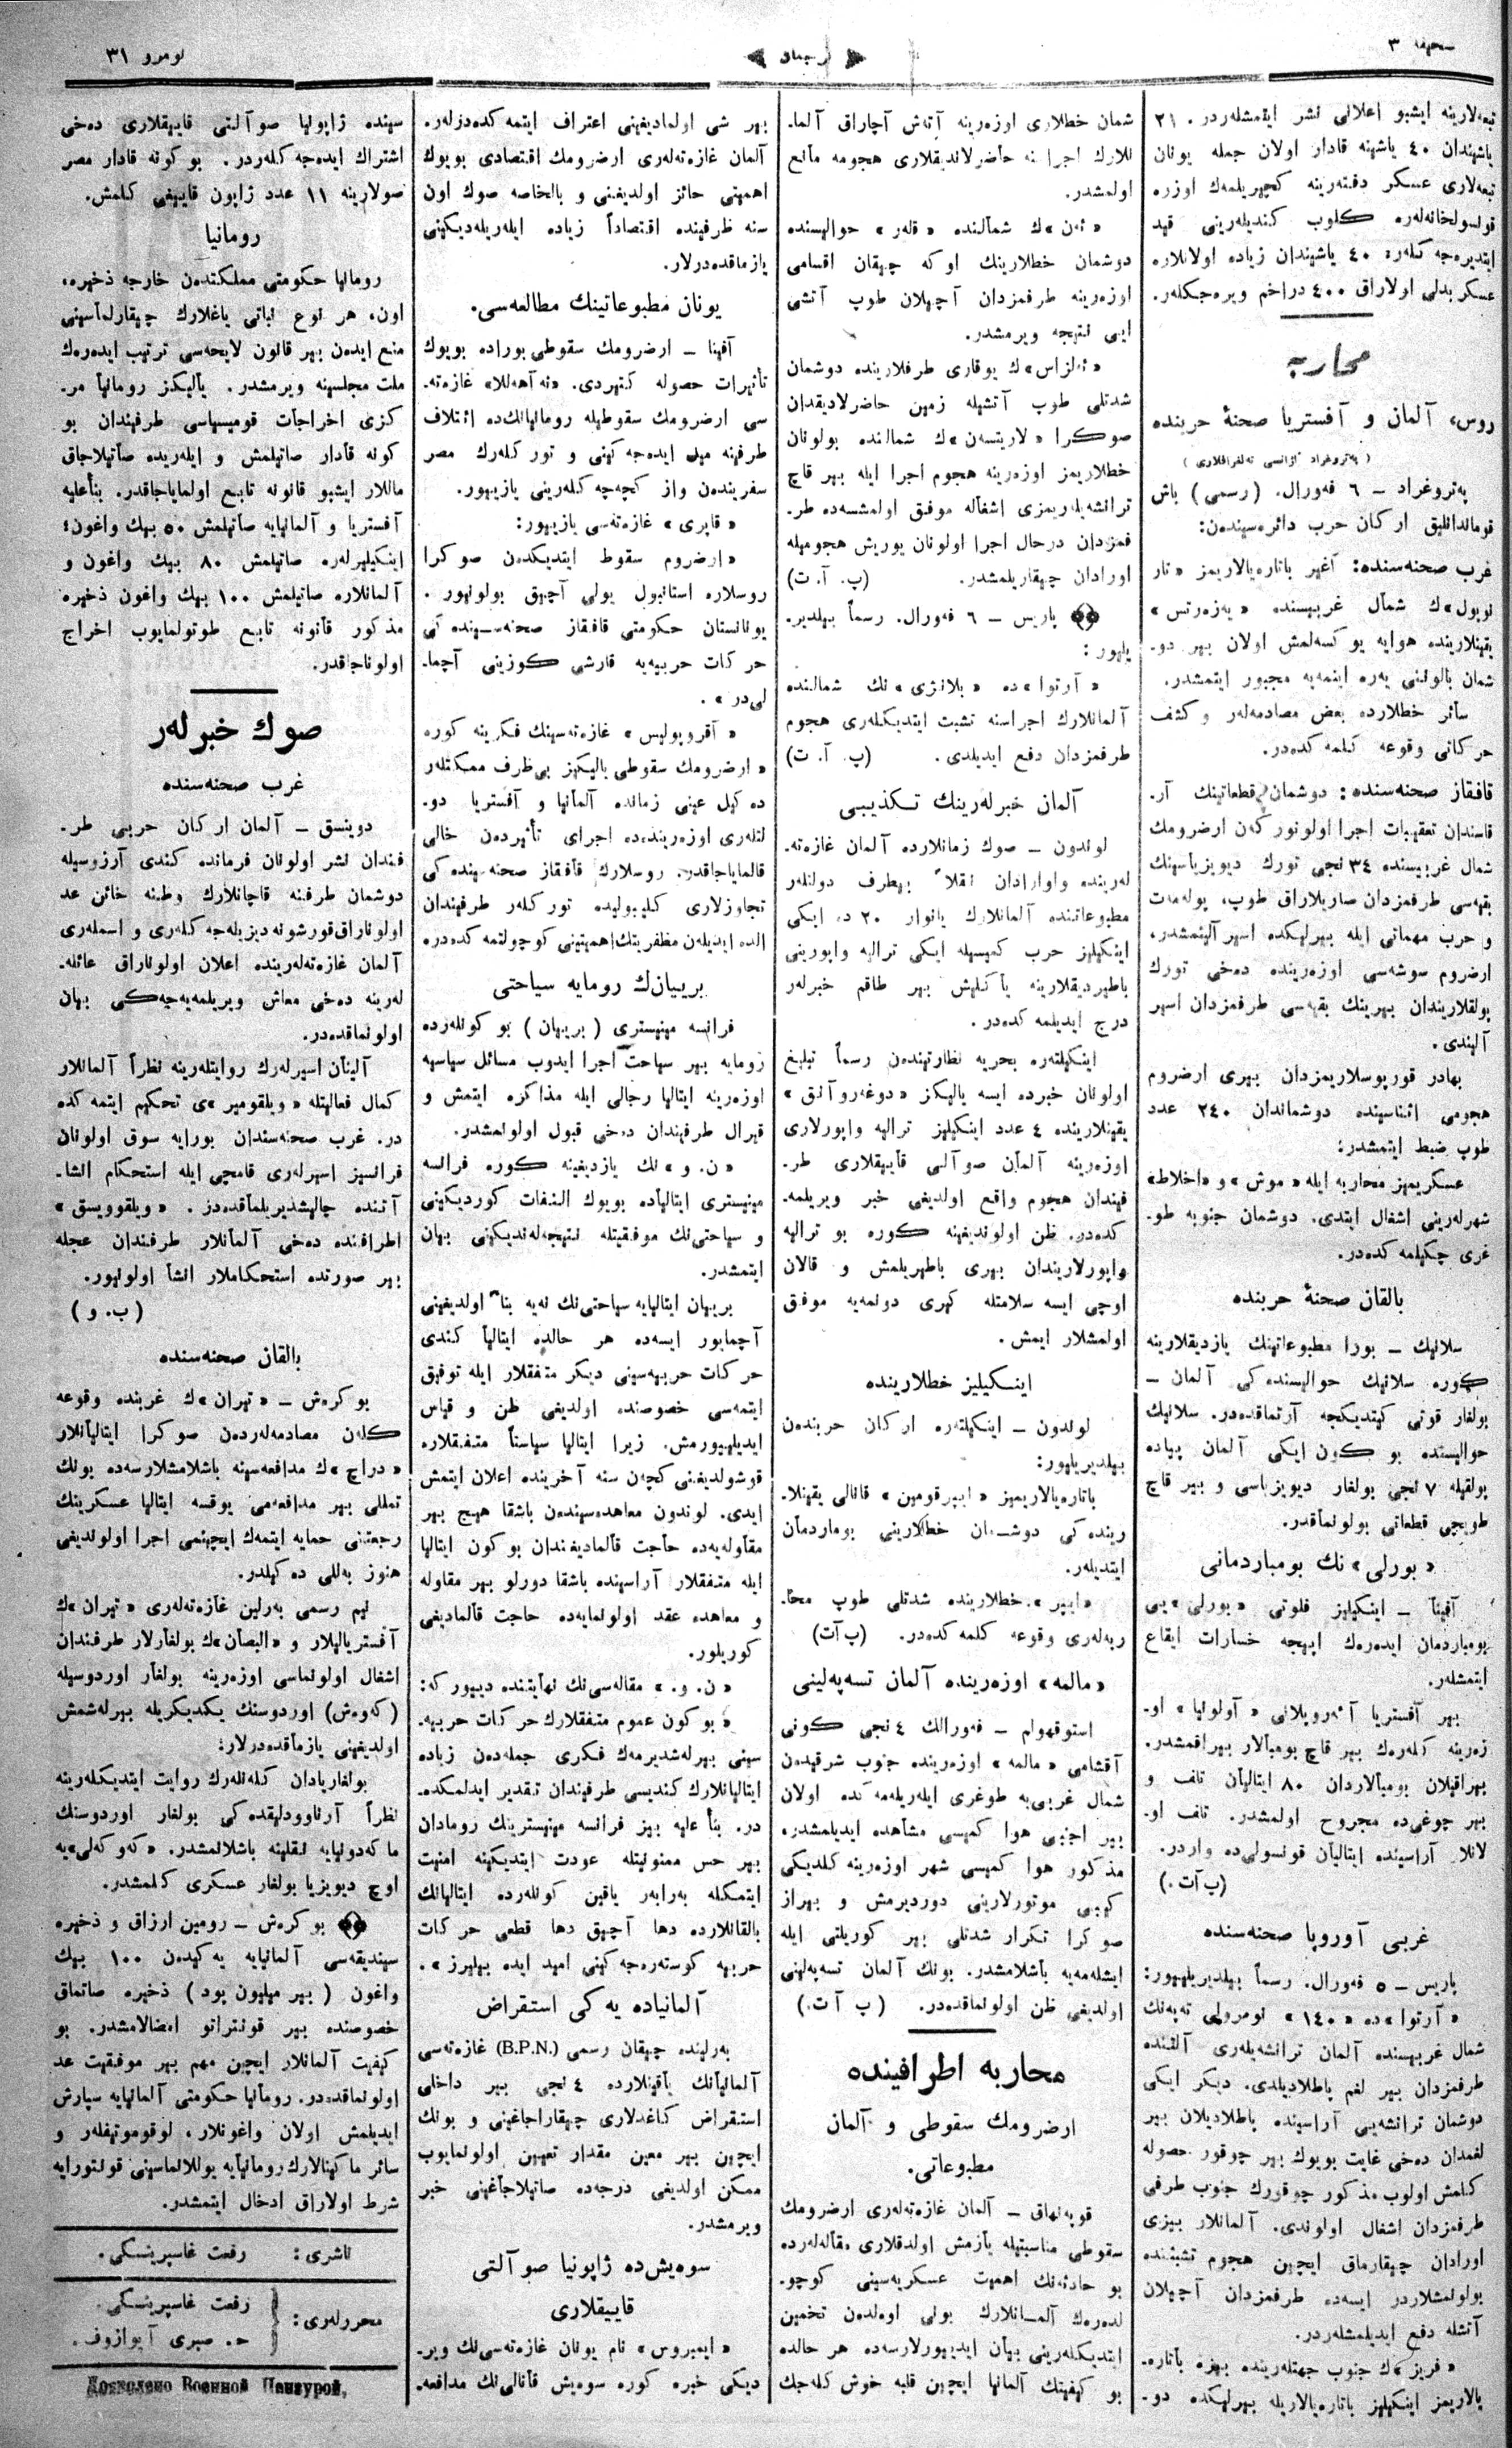 صحیفه ٣
ترجمان
نومرو ٣١
تبعه‌لارینه ایشبو اعلانی نشر ایتمشله‌ردر. ٢١
یاشیندان ٤٠ یاشینه قادار اولان جمله یونان
تبعه‌لاری عسکر دفته‌رینه کچیریلمه‌ك اوزره
قونسولخانه‌له‌ره کلوب کندیله‌رینی قید
ایتدیره‌جه کله‌ر؛ ٤٠ یاشیندان زیاده اولانلاره
عسکر بدلی اولاراق ٤٠٠ دراخم ویره‌جکله‌ر.
محاربه
روس، آلمان و آفستریا صحنهٔ حربنده
( پەتروغراد آژانسی تەلغرافلاری )
پەتروغراد – ٦ فەورال. (رسمی) باش
قوماندانلیق ارکان حرب دائره‌سیندن:
غرب صحنه‌سنده: آغیر باتاره‌یالاریمز «تار
نوپول»ك شمال غربیسنده «یەزەرنس»
یقینلارینده هوایه یوکسه‌لمش اولان بیر دو-
شمان بالونی یەره اینمه‌یه مجبور ایتمشدر.
سائر خطلارده بعض مصادمه‌له‌ر و کشف
حرکاتی وقوعه کلمه کده‌در.
قافقاز صحنه‌سنده: دوشمان قطعاتینك آر-
قاسندان تعقیبات اجرا اولونور کەن ارضرومك
شمال غربیسنده ٣٤ نجی تورك دیویزیاسینك
بقیه‌سی طرفمزدان صاریلاراق طوپ، پوله‌مه‌ت
و حرب مهماتی ایله بیرلیکده اسیر آلینمشدر،
ارضروم سوشه‌سی اوزه‌رینده ده‌خی تورك
پولقلاریندان بیرینك بقیه‌سی طرفمزدان اسیر
آلیندی.
بهادر قورپوسلاریمزدان بیری ارضروم
هجومی اثناسینده دوشماندان ٢٤٠ عدد
طوپ ضبط ایتمشدر؛
عسکریمیز محاربه ایله «موش» و «اخلاط»
شهرله‌رینی اشغال ایتدی. دوشمان جنوبه طو-
غری چکیلمه کده‌در.
بالقان صحنهٔ حربنده
سلانیك – بورا مطبوعاتینك یازدیقلارینه
کوره سلانیك حوالیسنده کی آلمان –
بولغار قوتی کیتدیکجه آرتماقده‌در. سلانیك
حوالیسنده بو کون ایکی آلمان پیاده
پولقیله ٧ نجی بولغار دیویزیاسی و بیر قاچ
طوپچی قطعاتی بولونماقدر.
«بورلی» نك بومباردمانی
آفینا – اینکیلیز فلوتی «بورلی»یی
بومباردمان ایده‌ره‌ك ایپجه خسارات ایقاع
ایتمشله‌ر.
بیر آفستریا آئه‌روپلانی «آولونیا» او-
زه‌رینه کله‌ره‌ك بیر قاچ بومبالار بیراقمشدر.
بیراقیلان بومبالاردان ٨٠ ایتالیان تلف و
بیر چوغی‌ده مجروح اولمشدر. تلف او-
لانلار آراسینده ایتالیان قونسولی‌ده واردر.
(پ آت.)
غربی آوروپا صحنه‌سنده
پاریس – ٥ فەورال. رسماً بیلدیریلیور:
«آرتوا»ده «١٤٠» نومرولی تەپەنك
شمال غربیسنده آلمان ترانشەیلەری آلتنده
طرفمزدان بیر لغم پاطلادیلدی. دیکر ایکی
دوشمان ترانشەیی آراسینده پاطلادیلان بیر
لغمدان ده‌خی غایت بویوك بیر چوقور حصوله
کلمش اولوب مذکور چوقورك جنوب طرفی
طرفمزدان اشغال اولوندی. آلمانلار بیزی
اورادان چیقارماق ایچین هجوم تشبثنده
بولونمشلاردر ایسه‌ده طرفمزدان آچیلان
آتشله دفع ایدیلمشله‌ردر.
«فریز»ك جنوب جهتله‌رینده بیزه باتاره-
یالاریمز اینکیلیز باتاره‌یالاریله بیرلیکده دو-
شمان خطلاری اوزه‌رینه آتەش آچاراق آلما-
نلارك اجراسنه حاضرلاندیقلاری هجومه مانع
اولمشدر.
«ئەن»ك شمالنده «قلەر» حوالیسنده
دوشمان خطلارینك اوکه چیقان اقسامی
اوزه‌رینه طرفمزدان آچیلان طوپ آتشی
ایی نتیجه ویرمشدر.
«ئەلزاس»ك یوقاری طرفلارینده دوشمان
شدتلی طوپ آتشیله زمین حاضرلادیقدان
صوکرا «لاریتسەن»ك شمالنده بولونان
خطلاریمز اوزه‌رینه هجوم اجرا ایله بیر قاچ
ترانشه‌یله‌ریمزی اشغاله موفق اولمشسه‌ده طر-
فمزدان درحال اجرا اولونان یوریش هجومیله
اورادان چیقاریلمشدر. (پ. آ. ت)
پاریس – ٦ فەورال. رسماً بیلدیر-
یلیور:
«آرتوا»ده «بلانژی»نك شمالنده
آلمانلارك اجراسنه تشبث ایتدیکله‌ری هجوم
طرفمزدان دفع ایدیلدی. (پ. آ. ت)
آلمان خبرله‌رینك تکذیبی
لوندون – صوك زمانلارده آلمان غازه‌ته-
له‌رینده واولارادان نقلاً بیطرف دولتله‌ر
مطبوعاتنده آلمانلارك یانوار ٢٠ ده ایکی
اینکیلیز حرب کمیسیله ایکی ترالیه واپورینی
باطیردیقلارینه یاکلیش بیر طاقم خبرله‌ر
درج ایدیلمه کده‌در.
اینکیلته‌ره بحریه نظارتیندن رسماً تبلیغ
اولونان خبرده ایسه یالیکز «دوغەروآنق»
یقینلارینده ٤ عدد اینکیلیز ترالیه واپورلاری
اوزه‌رینه آلمان صوآلتی قاییقلاری طر-
فیندان هجوم واقع اولدیغی خبر ویریلمه-
کده‌در. ظن اولوندیغینه کوره بو ترالیه
واپورلاریندان بیری باطیریلمش و قالان
اوچی ایسه سلامتله کیری دونمه‌یه موفق
اولمشلار ایمش.
اینکیلیز خطلارینده
لوندون – اینکیلته‌ره ارکان حربندن
بیلدیریلیور:
باتاره‌یالاریمیز «ایپرقومین» قانالی یقینلا-
رینده کی دوشمان خطلارینی بوماردمان
ایتدیله‌ر.
«ایپر». خطلارینده شدتلی طوپ محا-
ربه‌له‌ری وقوعه کلمه کده‌در. (پ آت)
«مالمه» اوزه‌رینده آلمان تسەپەلینی
استوقهولم – فەورالك ٤ نجی کونی
آقشامی «مالمه» اوزه‌رینده جنوب شرقیدن
شمال غربی‌یه طوغری ایله‌ریله‌مه کده اولان
بیر اجنبی هوا کمیسی مشاهده ایدیلمشدر،
مذکور هوا کمیسی شهر اوزه‌رینه کلدیکی
کیبی موتورلارینی دوردیرمش و بیراز
صوکرا تکرار شدتلی بیر کورولتی ایله
ایشله‌مه‌یه باشلامشدر. بونك آلمان تسەپەلینی
اولدیغی ظن اولونماقده‌در. (پ آ ت.)
محاربه اطرافینده
ارضرومك سقوطی و آلمان
مطبوعاتی.
قوپەنهاق – آلمان غازه‌ته‌له‌ری ارضرومك
سقوطی مناسبتیله یازمش اولدقلاری مقاله‌له‌رده
بو حادثه‌نك اهمیت عسکریه‌سینی کوچو-
لده‌ره‌ك آلمانلارك بونی اولدن تخمین
ایتدیکله‌رینی بیان ایدییورلارسه‌ده هر حالده
بو کیفیتك آلمانیا ایچین قلبه خوش کله‌جك
بیر شی اولمادیغینی اعتراف ایتمه کده‌درله‌ر.
آلمان غازه‌ته‌له‌ری ارضرومك اقتصادی بویوك
اهمیتی حائز اولدیغنی و بالخاصه صوك اون
سنه ظرفینده اقتصاداً زیاده ایله‌ریله‌دیکینی
یازماقده‌درلار.
یونان مطبوعاتینك مطالعه‌سی.
آفینا – ارضرومك سقوطی بوراده بویوك
تأثیرات حصوله کتیردی. «نه آهه‌للا» غازه‌ته-
سی ارضرومك سقوطیله رومانیانك‌ده ائتلاف
طرفینه میل ایده‌جه کینی و تورکله‌رك مصر
سفریندن واز کچه‌جه کله‌رینی یازییور.
«قاپری» غازه‌ته‌سی یازییور:
«ارضروم سقوط ایتدیکدن صوکرا
روسلاره استانبول یولی آچیق بولونیور.
یونانستان حکومتی قافقاز صحنه‌سینده کی
حرکات حربییه‌یه قارشی کوزینی آچما-
لی‌در».
«آقروپولیس» غازه‌ته‌سینك فکرینه کوره
«ارضرومك سقوطی یالیکیز بی‌طرف مملکتله‌ر
ده کیل عینی زمانده آلمانیا و آفستریا دو-
لتله‌ری اوزه‌رینده‌ده اجرای تأثیردن خالی
قالمایاجاقدر. روسلارك قافقاز صحنه‌سینده کی
تجاوزلاری کلیبولیده تورکله‌ر طرفیندان
الده ایدیله‌ن مظفریتك اهمیتینی کوچولتمه کده‌در»
برییان‌ك رومایه سیاحتی
فرانسه مینیستری (برییان) بو کونله‌رده
رومایه بیر سیاحت اجرا ایدوب مسائل سیاسیه
اوزه‌رینه ایتالیا رجالی ایله مذاکره ایتمش و
قیرال طرفیندان ده‌خی قبول اولونمشدر.
«ن. و»نك یازدیغینه کوره فرانسه
مینیستری ایتالیاده بویوك التفات کوردیکینی
و سیاحتی‌نك موفقیتله نتیجه‌له‌ندیکینی بیان
ایتمشدر.
برییان ایتالیایه سیاحتی‌نك نه‌یه بناً اولدیغینی
آچمایور ایسه‌ده هر حالده ایتالیا کندی
حرکات حربیه‌سینی دیکر متفقلار ایله توفیق
ایتمه‌سی خصوصنده اولدیغی ظن و قیاس
ایدیلییورمش. زیرا ایتالیا سیاستاً متفقلاره
قوشولدیغنی کچەن سنه آخرینده اعلان ایتمش
ایدی. لوندون معاهده‌سیندن باشقا هیچ بیر
مقاوله‌یه‌ده حاجت قالمادیغندان بو کون ایتالیا
ایله متفقلار آراسینده باشقا دورلو بیر مقاوله
و معاهده عقد اولونمایه‌ده حاجت قالمادیغی
کوریلور.
«ن. و.» مقاله‌سی‌نك نهایتنده دییور که:
«بو کون عموم متفقلارك حرکات حربیه-
سینی بیرله‌شدیرمه‌ك فکری جمله‌دن زیاده
ایتالیانلارك کندیسی طرفیندان تقدیر ایدلمکده-
در. بناً علیه بیز فرانسه مینیسترینك رومادان
بیر حس ممنونیتله عودت ایتدیکینه امنیت
ایتمکله به‌رابه‌ر یاقین کونله‌رده ایتالیانك
بالقانلارده دها آچیق دها قطعی حرکات
حربیه کوسته‌ره‌جه کینی امید ایده بیلیرز».
آلمانیاده یه کی استقراض
بەرلینده چیقان رسمی (B.P.N.) غازه‌ته‌سی
آلمانیانك یاقینلارده ٤ نجی بیر داخلی
استقراض کاغدلاری چیقاراجاغینی و بونك
ایچین بیر معین مقدار تعیین اولونمایوب
ممکن اولدیغی درجه‌ده صاتیلاجاغینی خبر
ویرمشدر.
سوه‌یش‌ده ژاپونیا صوآلتی
قاییقلاری
«ایمبروس» نام یونان غازه‌ته‌سی‌نك ویر-
دیکی خبره کوره سوه‌یش قانالی‌نك مدافعه-
سینده ژاپونیا صوآلتی قاییقلاری ده‌خی
اشتراك ایده‌جه کله‌ردر. بو کونه قادار مصر
صولارینه ١١ عدد ژاپون قاییغی کلمش.
رومانیا
رومانیا حکومتی مملکتدن خارجه ذخیره،
اون، هر نوع نباتی یاغلارك چیقارلماسینی
منع ایده‌ن بیر قانون لایحه‌سی ترتیب ایده‌ره‌ك
ملت مجلسینه ویرمشدر. یالیکز رومانیا مر-
کزی اخراجات قومیسیاسی طرفیندان بو
کونه قادار صاتیلمش و ایله‌ریده صاتیلاجاق
ماللار ایشبو قانونه تابع اولمایاجاقدر. بناًعلیه
آفستریا و آلمانیایه صاتیلمش ٥٠ بیك واغون؛
اینکیلیزله‌ره صاتیلمش ٨٠ بیك واغون و
آلمانلاره صاتیلمش ١٠٠ بیك واغون ذخیره
مذکور قانونه تابع طوتولمایوب اخراج
اولوناجاقدر.
صوك خبرله‌ر
غرب صحنه‌سنده
دوینسق – آلمان ارکان حربی طر-
فندان نشر اولونان فرمانده کندی آرزوسیله
دوشمان طرفنه قاچانلارك وطنه خائن عد
اولوناراق قورشونه دیزیله‌جه کله‌ری و اسمله‌ری
آلمان غازه‌ته‌له‌رینده اعلان اولوناراق عائله-
له‌رینه ده‌خی معاش ویریلمه‌یه‌جه‌کی بیان
اولونماقده‌در.
آلینان اسیرله‌رك روایتله‌رینه نظراً آلمانلار
کمال فعالیتله «ویلقومیر»ی تحکیم ایتمه کده
در. غرب صحنه‌سندان بورایه سوق اولونان
فرانسیز اسیرله‌ری قامچی ایله استحکام انشا-
آتنده چالیشدیریلماقده‌در. «ویلقوویسق»
اطرافنده ده‌خی آلمانلار طرفندان عجله
بیر صورتده استحکاملار انشا اولونیور.
(ب. و)
بالقان صحنه‌سنده
بوکره‌ش – «تیران»ك غربنده وقوعه
کله‌ن مصادمه‌له‌ردن صوکرا ایتالیانلار
«دراچ»ك مدافعه‌سینه باشلامشلارسه‌ده بونك
تمللی بیر مدافعه‌می یوقسه ایتالیا عسکرینك
رجعتنی حمایه ایتمه‌ك ایچینمی اجرا اولوندیغی
هنوز به‌للی ده کیلدر.
نیم رسمی به‌رلین غازه‌ته‌له‌ری «تیران»ك
آفستریالیلار و «البصان»ك بولغارلار طرفندان
اشغال اولونماسی اوزه‌رینه بولغار اوردوسیله
(که‌وه‌ش) اوردوسنك یکدیکریله بیرله‌شمش
اولدیغینی یازماقده‌درلار؛
بولغاریادان کله‌نله‌رك روایت ایتدیکله‌رینه
نظراً آرناوودلیقده کی بولغار اوردوسنك
ماکه‌دونیایه نقلینه باشلانمشدر. «که‌وکه‌لی»یه
اوچ دیویزیا بولغار عسکری کلمشدر.
بوکره‌ش – رومین ارزاق و ذخیره
سیندیقه‌سی آلمانیایه یه کیدن ١٠٠ بیك
واغون (بیر میلیون پود) ذخیره صاتماق
خصوصنده بیر قونتراتو امضالامشدر. بو
کیفیت آلمانلار ایچین مهم بیر موفقیت عد
اولونماقده‌در. رومانیا حکومتی آلمانیایه سپارش
ایدیلمش اولان واغونلار، لوقوموتیفله‌ر و
سائر ماکینالارك رومانیایه یوللانماسینی قونتورایه
شرط اولاراق ادخال ایتمشدر.
ناشری: رفعت غاسپرینسکی.
محررله‌ری:
رفعت غاسپرینسکی.
ح. صبری آیوازوف.
Дозволено Военной Цензурой.